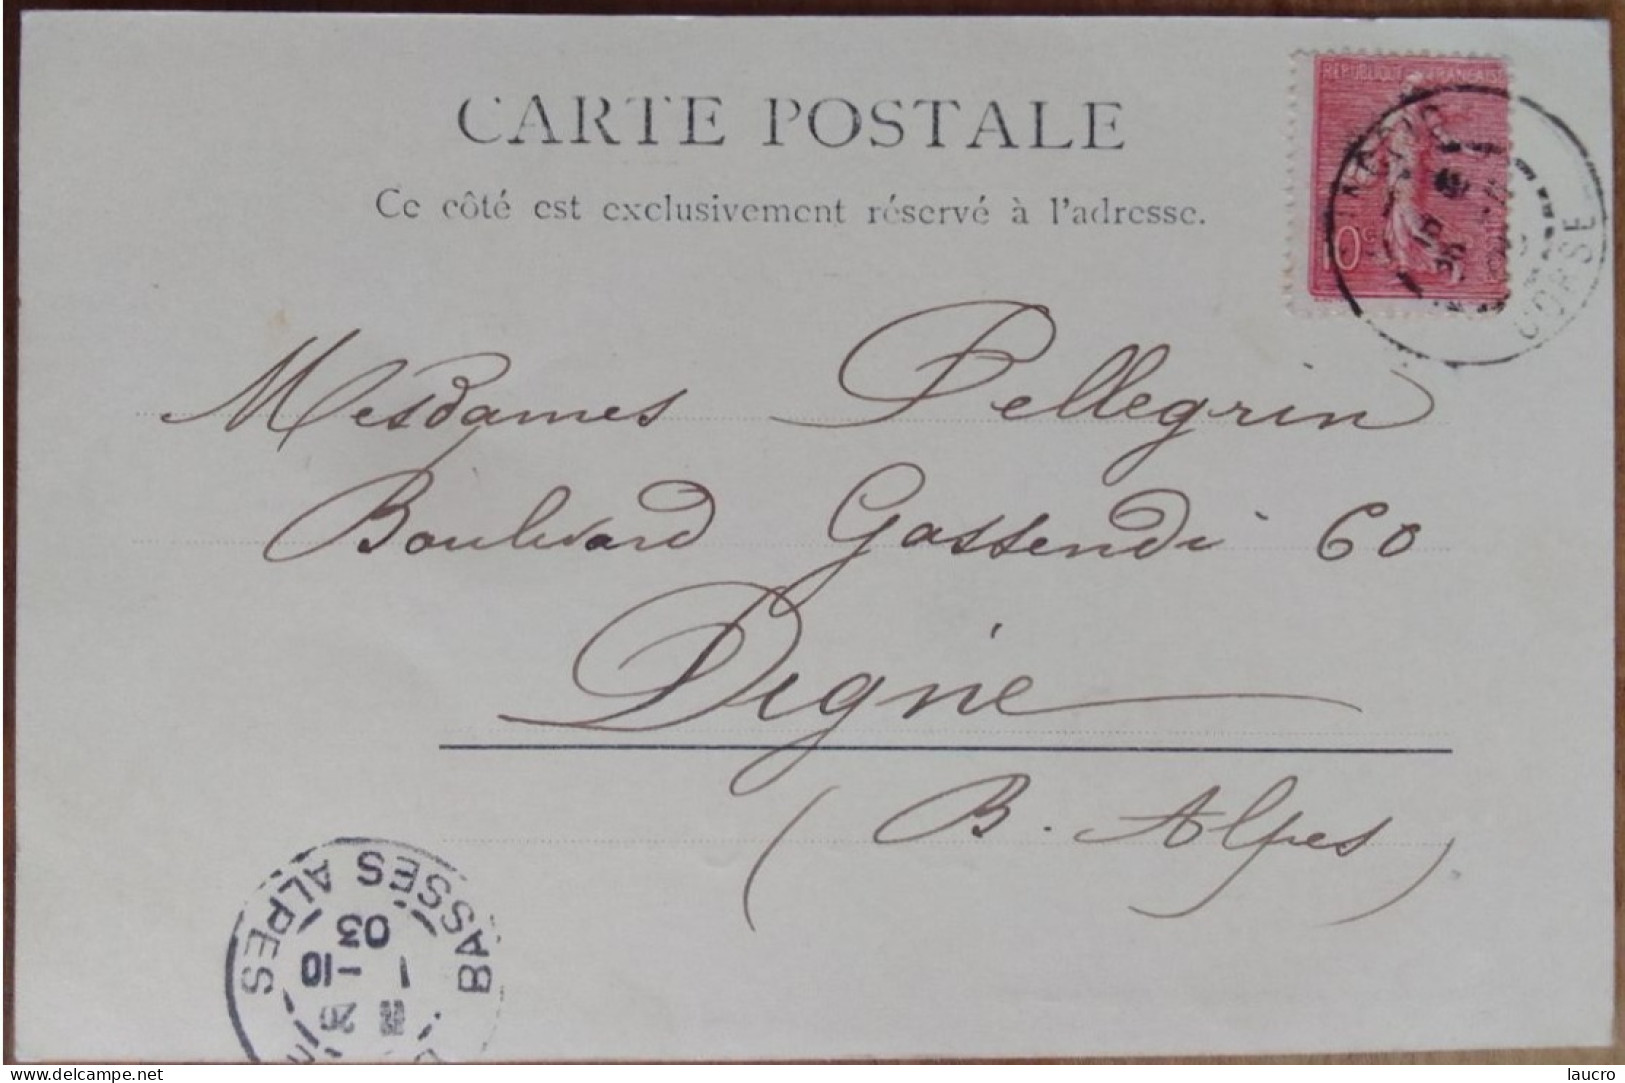 CARTE POSTALE
Ce côté est exclusivement réservé à l'adresse.
REPUBLIQUE FRANÇAISE
10c
CORSE
Mesdames Pellegrin
Boulevard Gassendi 60
Digne
(B. Alpes)
BASSES ALPES
-10
03
delcampe.net
laucro